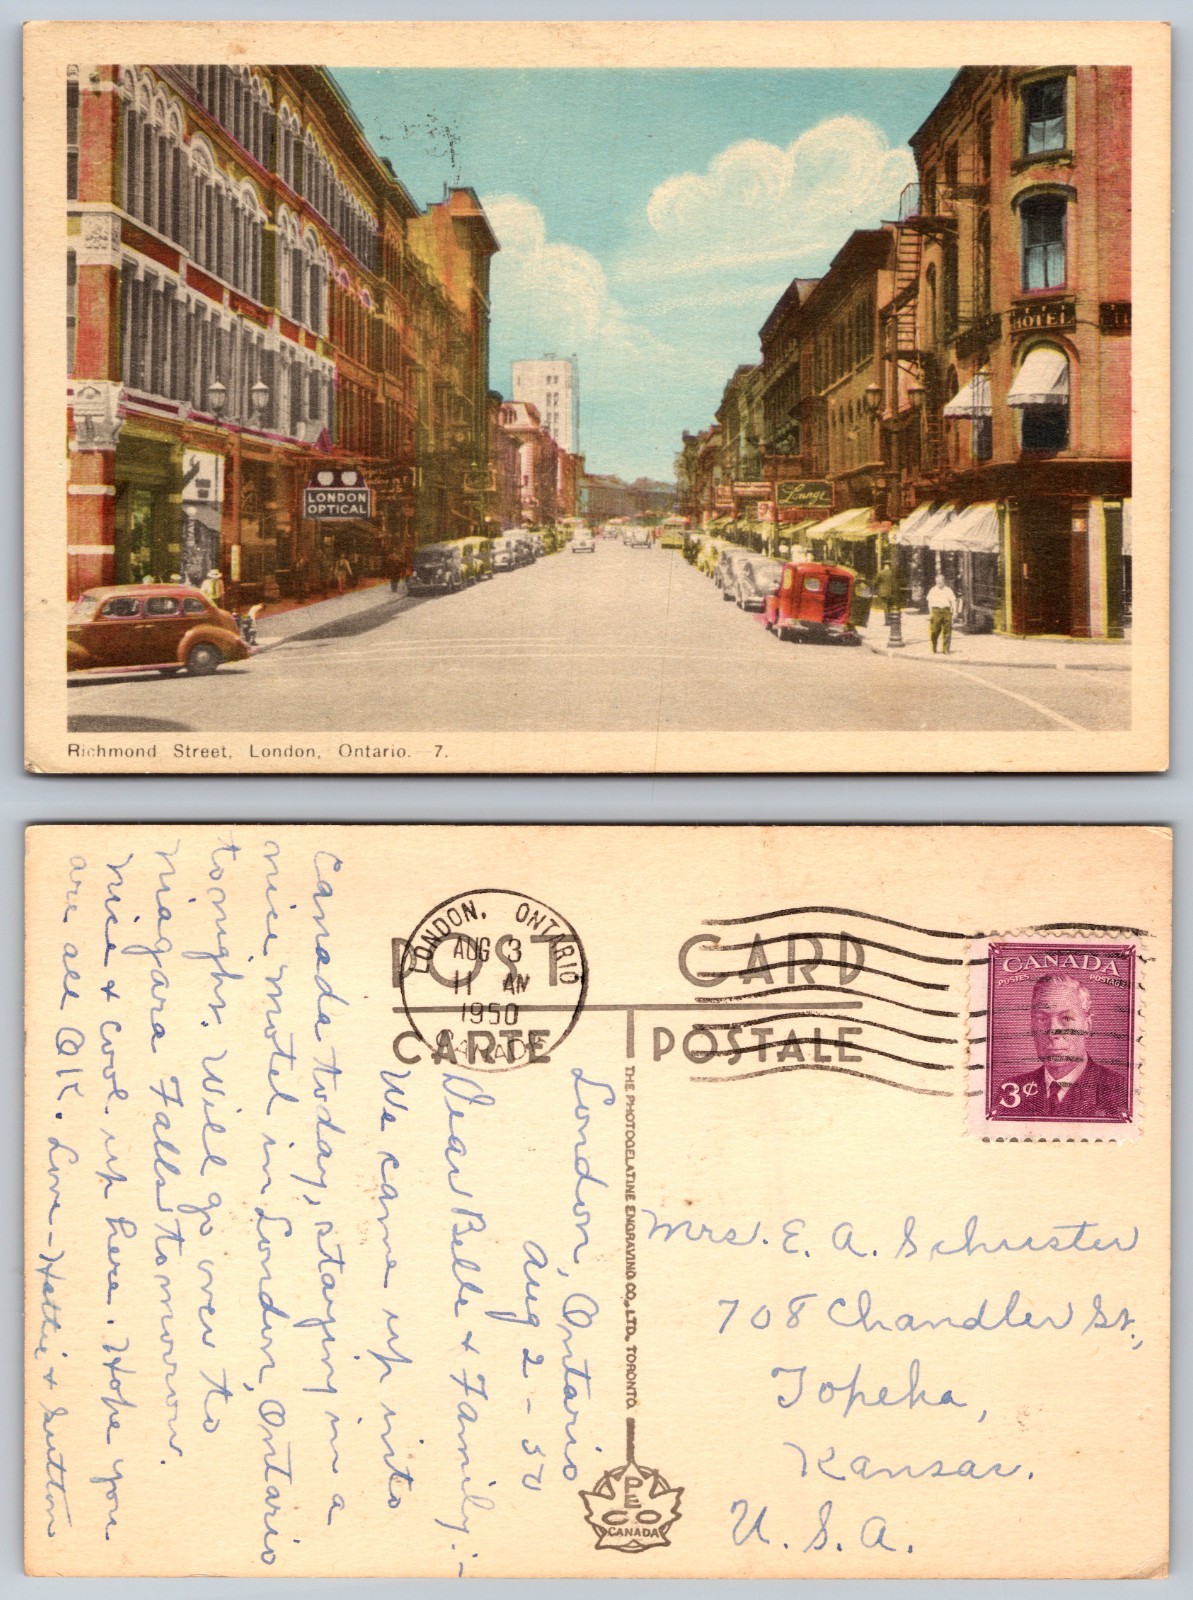 HOTEL
Lounge
LONDON
OPTICAL
Richmond Street, London, Ontario. — 7.
POST CARD
CARTE POSTALE
LONDON, ONTARIO
AUG 3
11 AM
1950
CANADA
CANADA
POSTES POSTAGE
3¢
THE PHOTOGELATINE ENGRAVING CO., LTD., TORONTO.
PECO
CANADA
London, Ontario
Aug 2 - 50
Dear Belle & Family:-
We came up into
Canada today, staying in a
nice motel in London, Ontario
tonight. Will go over to
Niagara Falls tomorrow.
Nice & cool up here. Hope you
are all OK. Love - Hattie & Sutton
Mrs. E. A. Schuster
708 Chandler St.,
Topeka,
Kansas.
U. S. A.